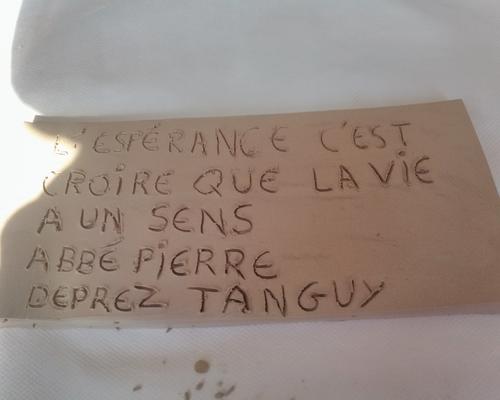 L'ESPÉRANCE C'EST
CROIRE QUE LA VIE
A UN SENS
ABBÉ PIERRE
DEPREZ TANGUY